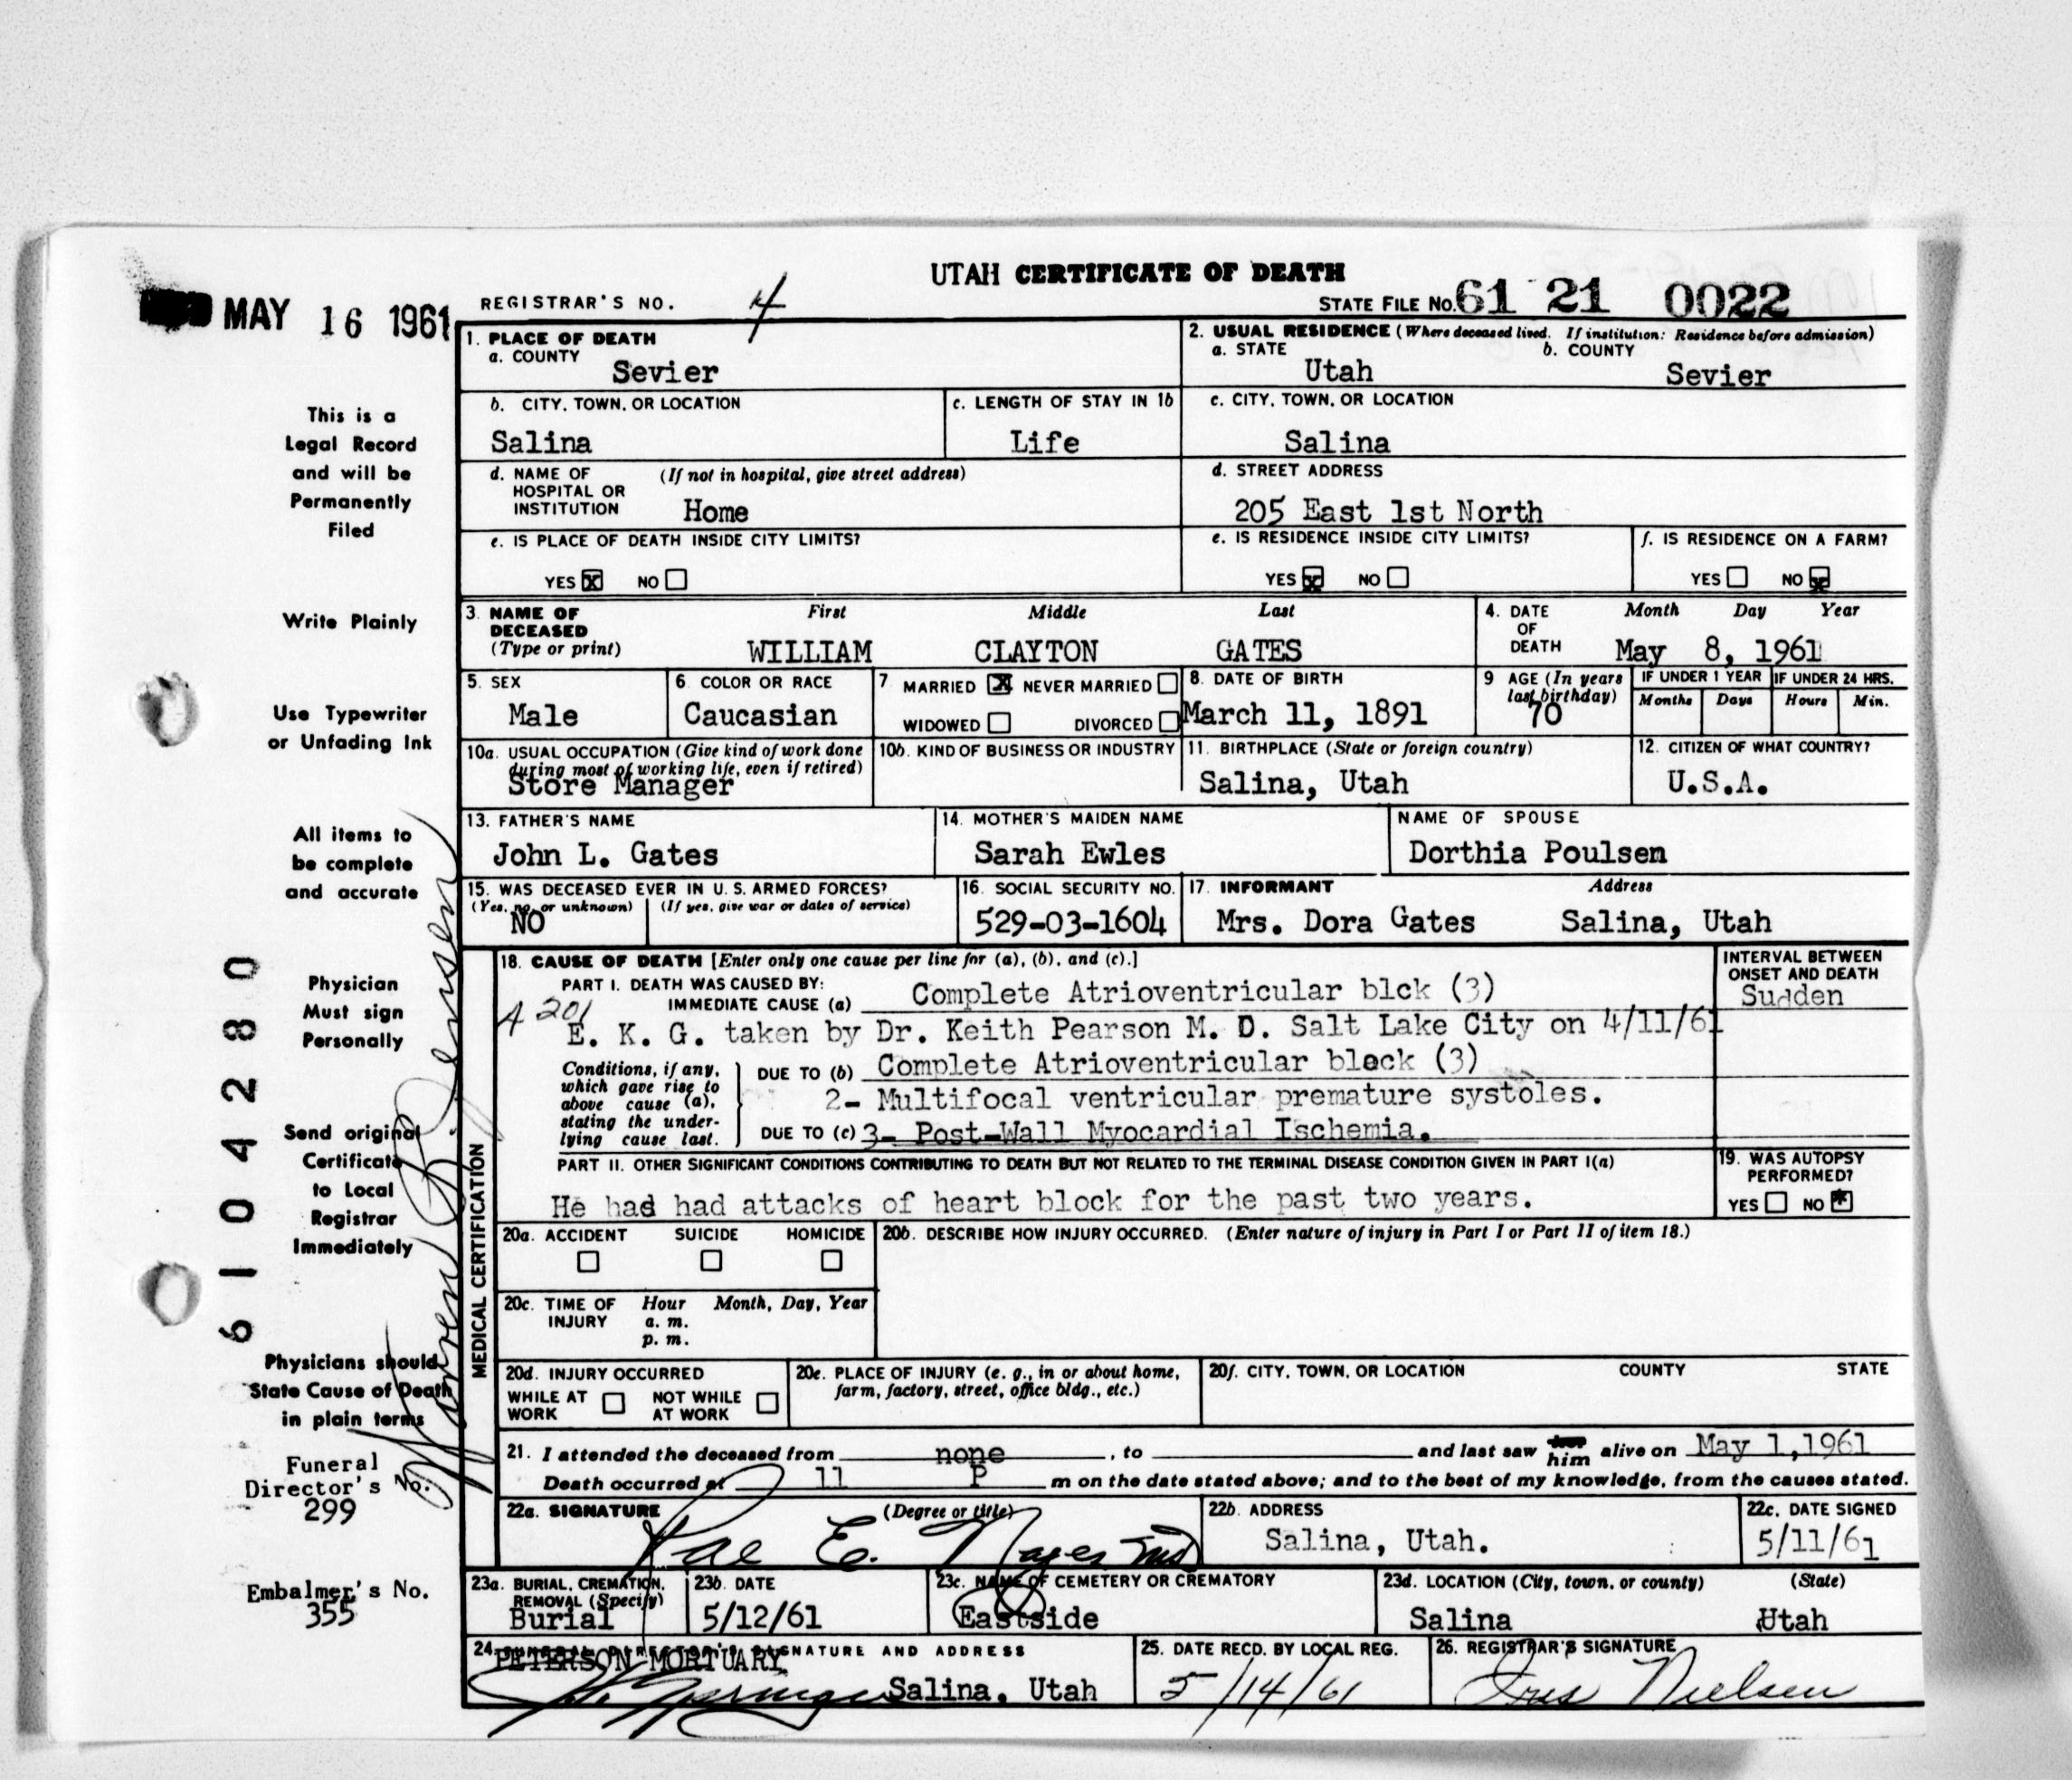 UTAH CERTIFICATE OF DEATH
MAY 16 1961
REGISTRAR'S NO. 4
STATE FILE No. 61 21 0022
1. PLACE OF DEATH
a. COUNTY
Sevier
2. USUAL RESIDENCE (Where deceased lived. If institution: Residence before admission)
a. STATE b. COUNTY
Utah Sevier
b. CITY, TOWN, OR LOCATION
Salina
c. LENGTH OF STAY IN 1b
Life
c. CITY, TOWN, OR LOCATION
Salina
d. NAME OF (If not in hospital, give street address)
HOSPITAL OR
INSTITUTION Home
d. STREET ADDRESS
205 East 1st North
e. IS PLACE OF DEATH INSIDE CITY LIMITS?
YES X NO
e. IS RESIDENCE INSIDE CITY LIMITS?
YES X NO
f. IS RESIDENCE ON A FARM?
YES NO X
3. NAME OF DECEASED (Type or print)
First Middle Last
WILLIAM CLAYTON GATES
4. DATE OF DEATH
Month Day Year
May 8, 1961
5. SEX
Male
6. COLOR OR RACE
Caucasian
7 MARRIED X NEVER MARRIED
WIDOWED DIVORCED
8. DATE OF BIRTH
March 11, 1891
9 AGE (In years last birthday)
70
IF UNDER 1 YEAR IF UNDER 24 HRS.
Months Days Hours Min.
10a. USUAL OCCUPATION (Give kind of work done
during most of working life, even if retired)
Store Manager
10b. KIND OF BUSINESS OR INDUSTRY
11. BIRTHPLACE (State or foreign country)
Salina, Utah
12. CITIZEN OF WHAT COUNTRY?
U.S.A.
13. FATHER'S NAME
John L. Gates
14. MOTHER'S MAIDEN NAME
Sarah Ewles
NAME OF SPOUSE
Dorthia Poulsen
15. WAS DECEASED EVER IN U. S. ARMED FORCES?
(Yes, no, or unknown) (If yes, give war or dates of service)
NO
16. SOCIAL SECURITY NO.
529-03-1604
17. INFORMANT Address
Mrs. Dora Gates Salina, Utah
MEDICAL CERTIFICATION
18. CAUSE OF DEATH [Enter only one cause per line for (a), (b), and (c).]
INTERVAL BETWEEN
ONSET AND DEATH
PART I. DEATH WAS CAUSED BY:
IMMEDIATE CAUSE (a) Complete Atrioventricular blck (3)
Sudden
A 201
E. K. G. taken by Dr. Keith Pearson M. D. Salt Lake City on 4/11/61
Conditions, if any,
which gave rise to
above cause (a),
stating the under-
lying cause last.
DUE TO (b) Complete Atrioventricular block (3)
2- Multifocal ventricular premature systoles.
DUE TO (c) 3- Post-Wall Myocardial Ischemia.
PART II. OTHER SIGNIFICANT CONDITIONS CONTRIBUTING TO DEATH BUT NOT RELATED TO THE TERMINAL DISEASE CONDITION GIVEN IN PART I(a)
He has had attacks of heart block for the past two years.
19. WAS AUTOPSY
PERFORMED?
YES NO *
20a. ACCIDENT SUICIDE HOMICIDE
20b. DESCRIBE HOW INJURY OCCURRED. (Enter nature of injury in Part I or Part II of item 18.)
20c. TIME OF INJURY
Hour Month, Day, Year
a. m.
p. m.
20d. INJURY OCCURRED
WHILE AT WORK NOT WHILE AT WORK
20e. PLACE OF INJURY (e. g., in or about home,
farm, factory, street, office bldg., etc.)
20f. CITY, TOWN, OR LOCATION COUNTY STATE
21. I attended the deceased from none, to and last saw him alive on May 1,1961
Death occurred at 11 P m on the date stated above; and to the best of my knowledge, from the causes stated.
22a. SIGNATURE (Degree or title)
Rae E. Noyes MD
22b. ADDRESS
Salina, Utah.
22c. DATE SIGNED
5/11/61
23a. BURIAL, CREMATION,
REMOVAL (Specify)
Burial
23b. DATE
5/12/61
23c. NAME OF CEMETERY OR CREMATORY
Eastside
23d. LOCATION (City, town, or county) (State)
Salina Utah
24. FUNERAL DIRECTOR'S SIGNATURE AND ADDRESS
PETERSON MORTUARY
Salina, Utah
25. DATE RECD. BY LOCAL REG.
5/14/61
26. REGISTRAR'S SIGNATURE
Iris Nielsen
This is a
Legal Record
and will be
Permanently
Filed
Write Plainly
Use Typewriter
or Unfading Ink
All items to
be complete
and accurate
Physician
Must sign
Personally
Send original
Certificate
to Local
Registrar
Immediately
Physicians should
State Cause of Death
in plain terms
Funeral
Director's No.
299
Embalmer's No.
355
6104280